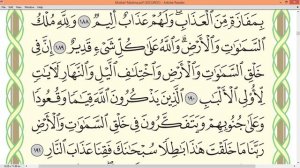 بِمَفَازَةٍ مِّنَ ٱلْعَذَابِ وَلَهُمْ عَذَابٌ أَلِيمٌ ١٨٨ وَلِلَّهِ مُلْكُ
ٱلسَّمَٰوَٰتِ وَٱلْأَرْضِ وَٱللَّهُ عَلَىٰ كُلِّ شَىْءٍ قَدِيرٌ ١٨٩ إِنَّ فِى
خَلْقِ ٱلسَّمَٰوَٰتِ وَٱلْأَرْضِ وَٱخْتِلَٰفِ ٱلَّيْلِ وَٱلنَّهَارِ لَءَايَٰتٍ
لِّأُو۟لِى ٱلْأَلْبَٰبِ ١٩٠ ٱلَّذِينَ يَذْكُرُونَ ٱللَّهَ قِيَٰمًا وَقُعُودًا
وَعَلَىٰ جُنُوبِهِمْ وَيَتَفَكَّرُونَ فِى خَلْقِ ٱلسَّمَٰوَٰتِ وَٱلْأَرْضِ
رَبَّنَا مَا خَلَقْتَ هَٰذَا بَٰطِلًا سُبْحَٰنَكَ فَقِنَا عَذَابَ ٱلنَّارِ ١٩١